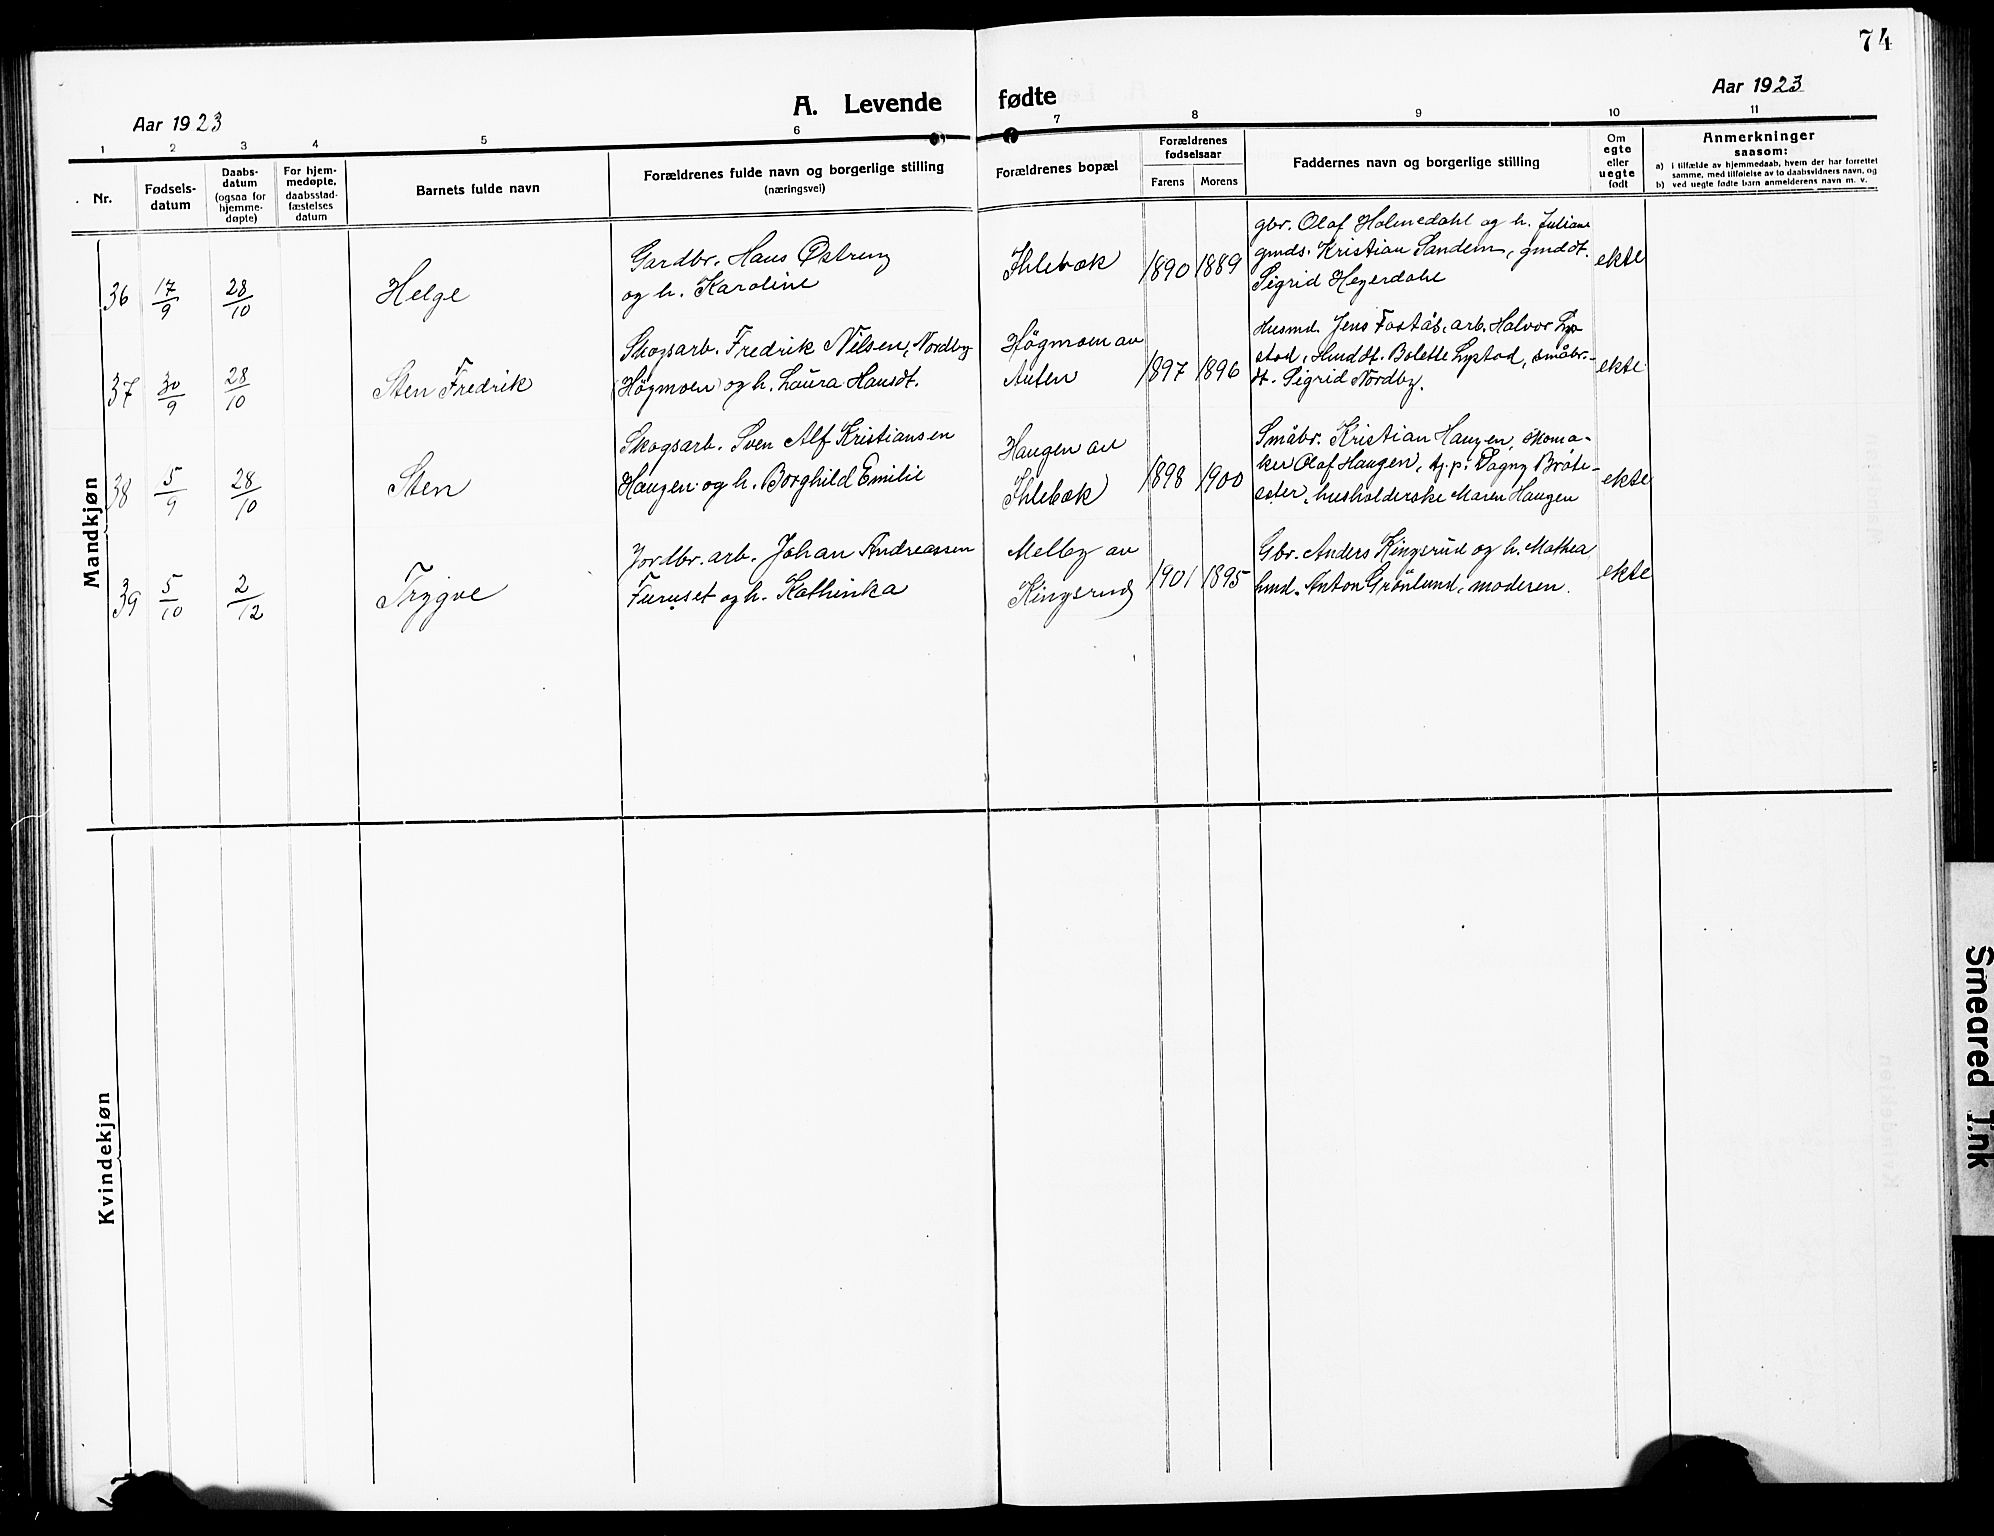 74
A. Levende fødte
Aar 1923
Aar 1923
1 2 3 4 5 6 7 8 9 10 11
Nr.
Fødsels-
datum
Daabs-
datum
(ogsaa for
hjemme-
døpte)
For hjem-
medøpte,
daabsstad-
fæstelses
datum
Barnets fulde navn
Forældrenes fulde navn og borgerlige stilling
(næringsvei)
Forældrenes bopæl
Forældrenes
fødselsaar
Farens Morens
Faddernes navn og borgerlige stilling
Om
egte
eller
uegte
født
Anmerkninger
saasom:
a) i tilfælde av hjemmedaab, hvem der har forrettet
samme, med tilføielse av to daabsvidners navn, og
b) ved uegte fødte barn anmelderens navn m. v.
Mandkjøn
36 17/9 28/10
Helge
Gardbr. Hans Østreng
og h. Karoline
Ihlebæk
1890 1889
gbr. Olaf Holmedahl og h. Juliane
gmds. Kristian Sandem, gmddt.
Sigrid Heyerdahl
ekte
37 30/9 28/10
Sten Fredrik
Skogsarb. Fredrik Nilsen, Nordby
(Högmoen) og h. Laura Hansdt.
Högmoen av
Auten
1897 1896
Husmd. Jens Fostås, arb. Halvor Lys-
stad, Hmddt. Bolette Lystad, småbr.-
dt. Sigrid Nordby.
ekte
38 5/9 28/10
Sten
Skogsarb. Sven Alf Kristiansen
Haugen og h. Borghild Emilie
Haugen av
Ihlebæk
1898 1900
Småbr. Kristian Haugen, skoma-
ker Olaf Haugen, tj.p. Dagny Bråte-
seter, husholderske Maren Haugen
ekte
39 5/10 2/12
Trygve
Jordbr. arb. Johan Andreassen
Furuset og h. Kathinka
Melby av
Kingsrud
1901 1895
Gbr. Anders Kingsrud og h. Mathea
hmd. Anton Grönlund, moderen.
ekte
Kvindekjøn
Smeared Ink